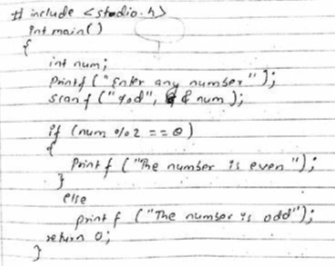 # include <stdio.h>
int main()
{
int num;
printf ("Enter any number");
scanf ("%d", & num);
if (num %2 == 0)
{
printf ("The number is even");
}
else
printf ("The number is odd");
return 0;
}